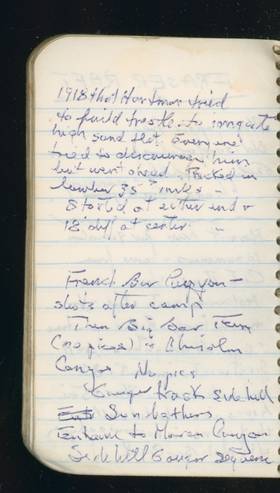 1918 that Hartman tried
to build trestle to irrigate
high sand flat. Everyone
tried to discourage him
but went ahead. Packed in
lumber 35 miles –
Started at either end &
12" diff at center.
French Bar Canyon –
shots after camp
Then Big Bar
(no pics) in Chisolm
Canyon No pics
Cougar track side hill
Sun bathers
Entrance to Canyon
Side Hill Gouger